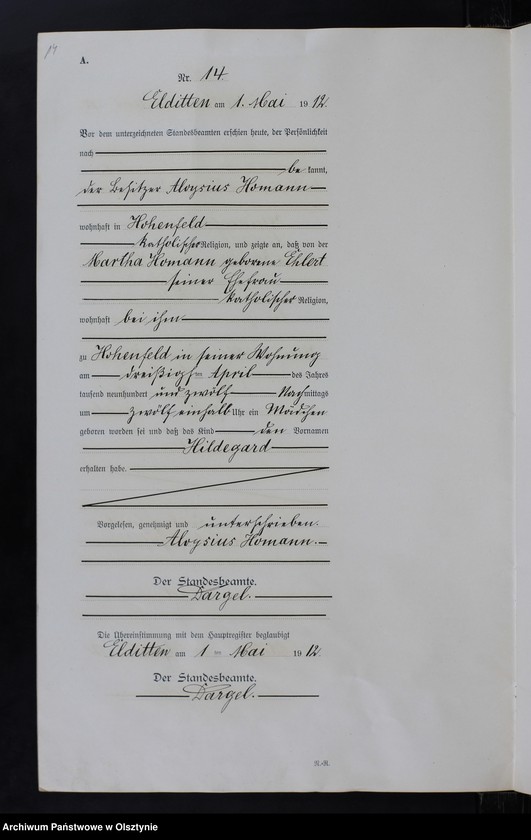 14
A.
Nr. 14
Elditten am 1. Mai 1912.
Vor dem unterzeichneten Standesbeamten erschien heute, der Persönlichkeit
nach
be kannt,
der Besitzer Aloysius Homann
wohnhaft in Hohenfeld
katholischer Religion, und zeigte an, daß von der
Martha Homann geborene Ehlert
seiner Ehefrau
katholischer Religion,
wohnhaft bei ihm
zu Hohenfeld in seiner Wohnung
am dreißigsten April des Jahres
tausend neunhundert und zwölf Nachmittags
um zwölf einhalb Uhr ein Mädchen
geboren worden sei und daß das Kind den Vornamen
Hildegard
erhalten habe.
Vorgelesen, genehmigt und unterschrieben.
Aloysius Homann.
Der Standesbeamte.
Dargel.
Die Übereinstimmung mit dem Hauptregister beglaubigt
Elditten am 1ten Mai 1912.
Der Standesbeamte.
Dargel.
N.-R.
Archiwum Państwowe w Olsztynie